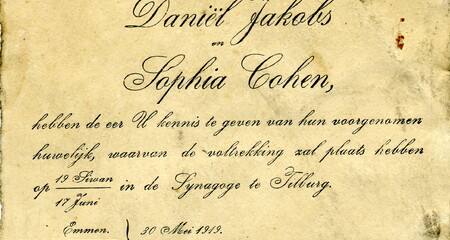 Daniël Jakobs
en
Sophia Cohen,
hebben de eer U kennis te geven van hun voorgenomen
huwelijk, waarvan de voltrekking zal plaats hebben
op 19 Siwan / 17 Juni in de Synagoge te Tilburg.
Emmen. } 30 Mei 1919.